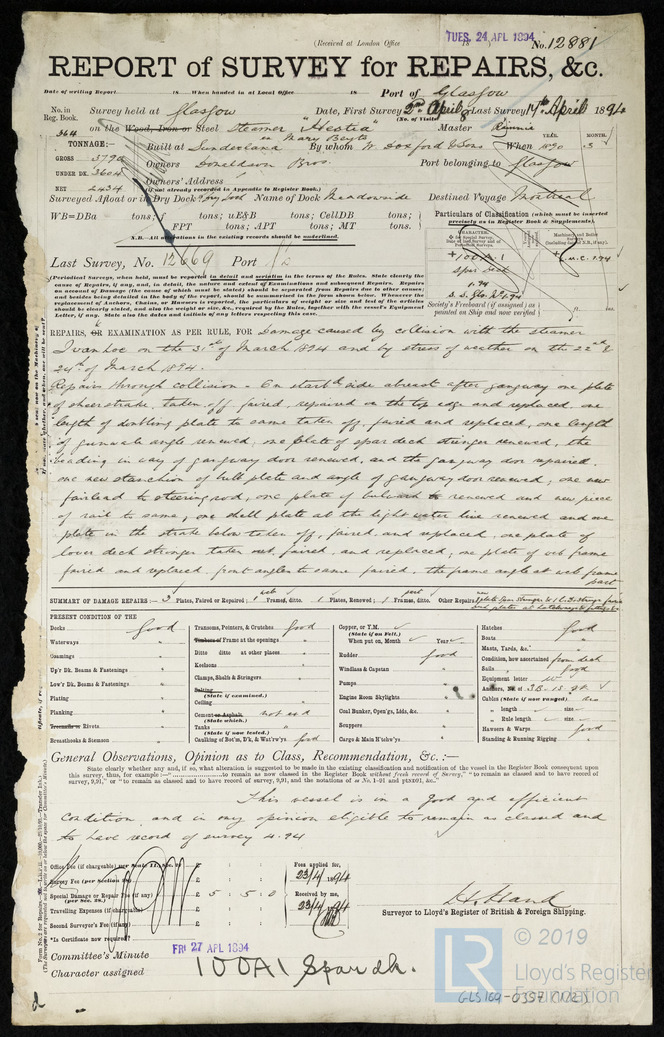 (Received at London Office TUES. 24 APL 1894
18 No. 12881
REPORT of SURVEY for REPAIRS, &c.
Date of writing Report 18 When handed in at Local Office 18 Port of Glasgow
No. in Reg. Book. Survey held at Glasgow Date, First Survey 2nd April Last Survey 14th April 1894
(No. of Visits)
364 on the Wood, Iron or Steel Steamer "Hestia" Master
TONNAGE:— YEAR. MONTH.
Built at Sunderland By whom W. Doxford & Sons When 1890 3
GROSS 3790
UNDER DK. 3604 Owners Donaldson Bros. Port belonging to Glasgow
NET 2434 Owners' Address
(if not already recorded in Appendix to Register Book.)
Surveyed Afloat or in Dry Dock Name of Dock Meadowside Destined Voyage Montreal
WB=DBa tons; f tons; uE&B tons; CellDB tons;
FPT tons; APT tons; MT tons.
N.B. All alterations in the existing records should be underlined.
Particulars of Classification (which must be inserted precisely as in Register Book & Supplements).
Last Survey, No. 12669 Port
+100A1
+L.M.C. 1.94
spar deck
1.94
S.S. Gls. No1-94
Society's Freeboard (if assigned) as painted on Ship and now verified
(Periodical Surveys, when held, must be reported in detail and seriatim in the terms of the Rules. State clearly the
cause of Repairs, if any, and, in detail, the nature and extent of Examinations and subsequent Repairs. Repairs
on account of Damage (the cause of which must be stated) should be separated from Repairs due to other causes;
and besides being detailed in the body of the report, should be summarized in the form shown below. Whenever the
replacement of Anchors, Chains, or Hawsers is reported, the particulars of weight or size and test of the articles
should be clearly stated, and also the weight or size, &c., required by the Rules, together with the vessel's Equipment
Letter, if any. State also the dates and initials of any letters respecting this case.
REPAIRS, OR EXAMINATION AS PER RULE, FOR Damage caused by collision with the steamer
Ivanhoe on the 31st of March 1894 and by stress of weather on the 22nd &
24th of March 1894.
Repairs through collision - On starbd side abreast after gangway one plate
of sheerstrake, taken off faired, repaired on the top edge and replaced, one
length of doubling plate to same taken off, faired and replaced, one length
of gunwale angle renewed, one plate of spar deck stringer renewed, the
beading in way of gangway door renewed, and the gangway door repaired,
one new stanchion of bulb plate and angle of gangway door renewed; one new
fairlead to steering rod, one plate of bulwark renewed and new piece
of rail to same, one shell plate at the light water line renewed and one
plate in the strake below taken off, faired, and replaced, one plate of
lower deck stringer taken out, faired, and replaced; one plate of web frame
faired and replaced, front angles to same faired, the frame angle at web frame
part
SUMMARY OF DAMAGE REPAIRS:— 3 Plates, Faired or Repaired; 1 web Frames, ditto. 1 Plates, Renewed; 1 part Frames, ditto. Other Repairs,
PRESENT CONDITION OF THE
Decks good
Waterways "
Coamings "
Up'r Dk. Beams & Fastenings "
Low'r Dk. Beams & Fastenings "
Plating "
Planking "
Treenails or Rivets "
Breasthooks & Stemson "
Transoms, Pointers, & Crutches good
Timbers of Frame at the openings "
Ditto ditto at other places "
Keelsons "
Clamps, Shelfs & Stringers "
Salting
(State if examined.)
Ceiling "
Cement or Asphalt not exd
(State which.)
Tanks
(State if now tested.)
Caulking of Bot'm, D'k, & Wat'rw'ys good
Copper, or Y.M.
(State if on Felt.)
When put on, Month Year
Rudder good
Windlass & Capstan "
Pumps "
Engine Room Skylights "
Coal Bunker, Open'gs, Lids, &c. "
Scuppers "
Cargo & Main H'tchw'ys "
Hatches good
Boats "
Masts, Yards, &c. "
Condition, how ascertained from deck
Sails good
Equipment letter W
Anchors, No. of 3B. 1S. 2K.
Cables (State if now ranged) no
" length size
" Rule length size
Hawsers & Warps good
Standing & Running Rigging "
General Observations, Opinion as to Class, Recommendation, &c.:—
State clearly whether any, and if so, what alteration is suggested to be made in the existing classification and notification of the vessel in the Register Book consequent upon
this survey, thus, for example:—"to remain as now classed in the Register Book without fresh record of Survey," "to remain as classed and to have record of
survey, 9,91," or "to remain as classed and to have record of survey, 9,91, and the notations of
This vessel is in a good and efficient
condition and in my opinion eligible to remain as classed and
to have record of survey 4.94
Office Fee (if chargeable) per Scale II.,
Survey Fee (per Section
Special Damage or Repair Fee (if any) (per Sec. 28.) £ 5 : 5 : 0
Travelling Expenses (if chargeable) £
Second Surveyor's Fee (if any) £
Fees applied for, 23/4 1894
Received by me, 23/4 1894
Surveyor to Lloyd's Register of British & Foreign Shipping.
*Is Certificate now required?
Committee's Minute FRI 27 APL 1894
Character assigned 100A1 Spar dk.
LR © 2019
Lloyd's Register
Foundation
GLS169-0357 (1/2)